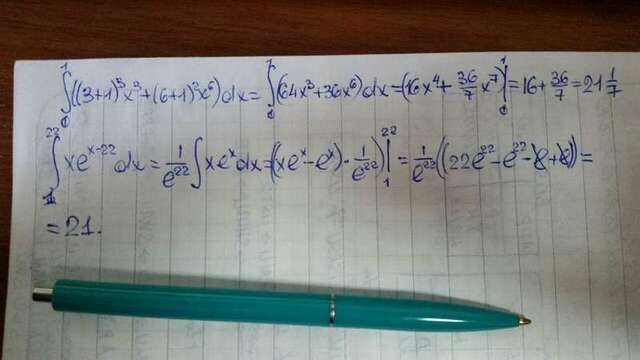 ∫₀¹((3+1)³x³+(6+1)²x⁶)dx=∫₀¹(64x³+36x⁶)dx=(16x⁴+36/7x⁷)|₀¹=16+36/7=21 1/7
∫₁²²xeˣ⁻²²dx=1/e²²∫xeˣdx=(xeˣ-eˣ)·1/e²²)|₁²²=1/e²²((22e²²-e²²-e+e))=
=21.